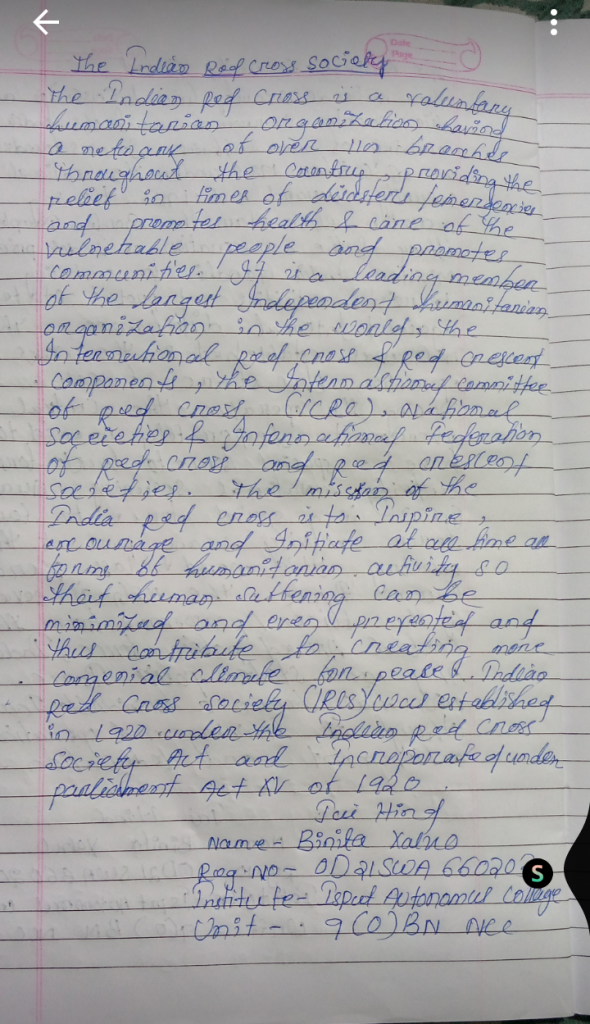 The Indian Red Cross Society
Date
Page
The Indian Red Cross is a voluntary
humanitarian organization having
a network of over 110 branches
throughout the country, providing the
relief in times of disasters /emergencies
and promotes health & care of the
vulnerable people and promotes
communities. It is a leading member
of the largest Independent humanitarian
organization in the world, the
International Red cross & Red crescent
components, the International committee
of Red cross (ICRC), National
societies & International Federation
of Red cross and Red crescent
societies. The mission of the
India Red cross is to Inspire,
encourage and Initiate at all time all
forms of humanitarian activity so
that human suffering can be
minimized and even prevented and
thus contribute to creating more
congenial climate for peace. Indian
Red Cross Society (IRCS) was established
in 1920 under the Indian Red Cross
Society Act and Incroporated under
parliament Act XV of 1920.
Jai Hind
Name - Binita Xalxo
Reg. No - OD21SWA 660202
Institute - Ispat Autonomus Collage
Unit - 9(O)BN NCC
S